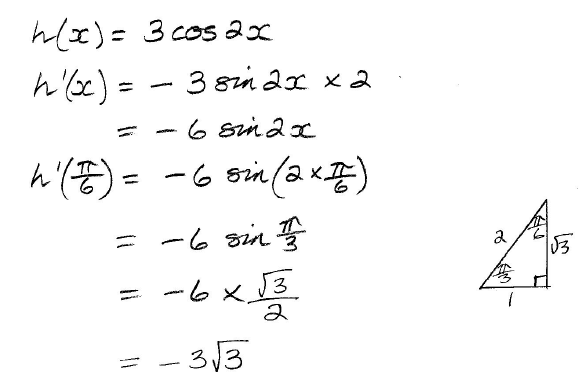 h(x) = 3 cos 2x
h'(x) = - 3 sin 2x × 2
= - 6 sin 2x
h'(π/6) = - 6 sin(2×π/6)
= -6 sin π/3
= -6 × √3/2
= - 3√3
2
π/6
√3
π/3
1